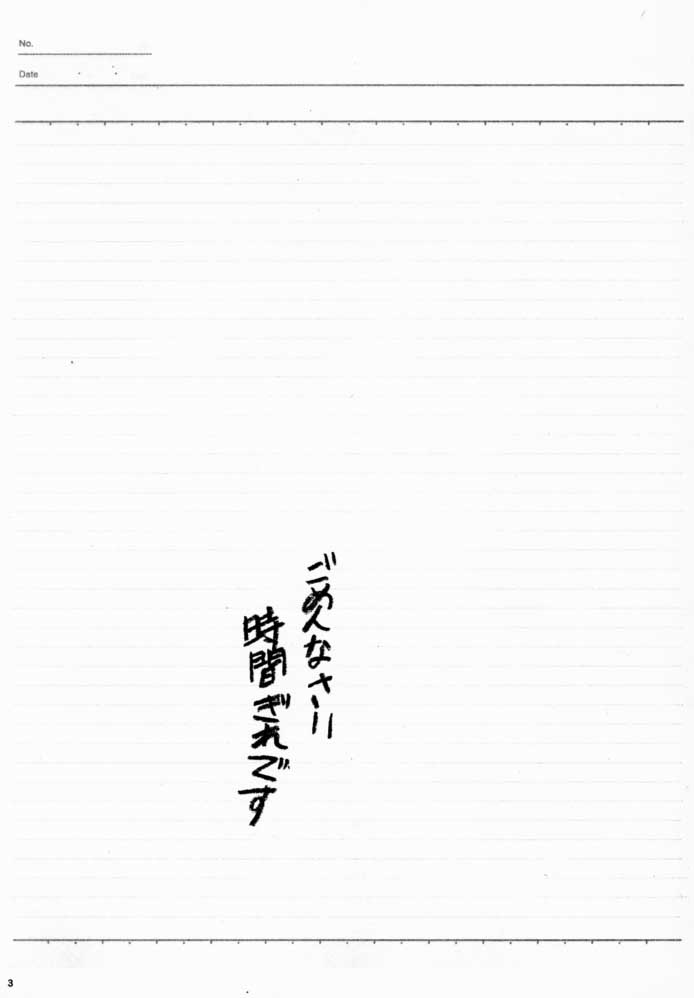 No.
Date
ごめんなさい
時間ぎれです
3